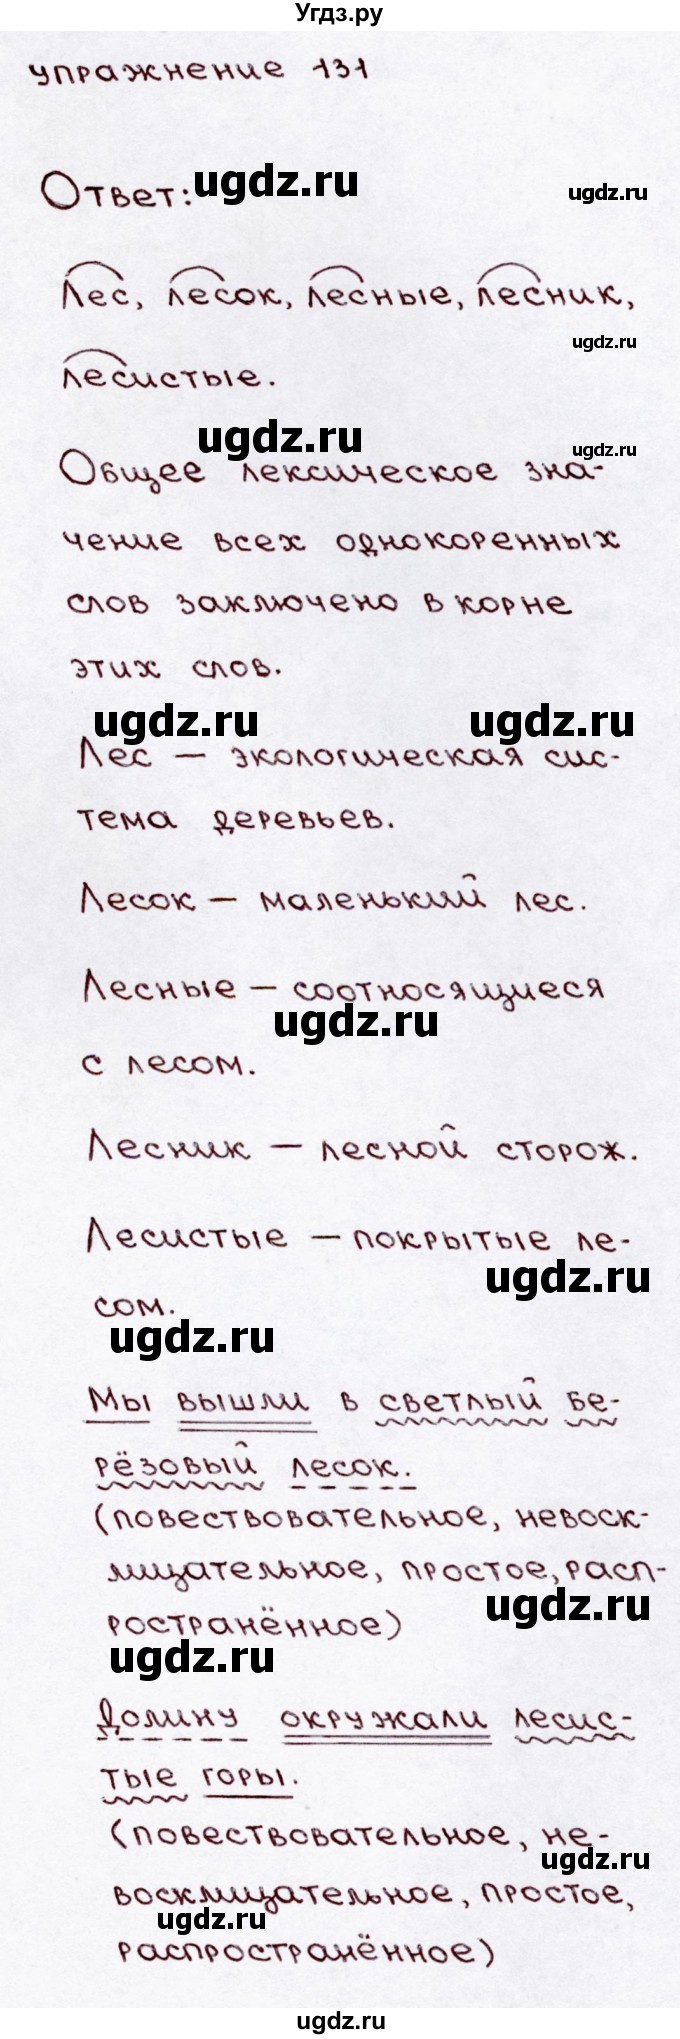 Угдз.ру
упражнение 131
Ответ: ugdz.ru ugdz.ru
Лес, лесок, лесные, лесник,
ugdz.ru
лесистые.
ugdz.ru ugdz.ru
Общее лексическое зна-
чение всех однокоренных
слов заключено в корне
этих слов.
ugdz.ru ugdz.ru
Лес – экологическая сис-
тема деревьев.
Лесок – маленький лес.
Лесные – соотносящиеся
ugdz.ru
с лесом.
Лесник – лесной сторож.
Лесистые – покрытые ле-
ugdz.ru
сом.
ugdz.ru
Мы вышли в светлый бе-
рёзовый лесок.
(повествовательное, невоск-
лицательное, простое, расп-
ugdz.ru
ространённое)
ugdz.ru
Долину окружали лесис-
тые горы.
(повествовательное, не-
ugdz.ru
восклицательное, простое,
ugdz.ru
распространённое)
ugdz.ru